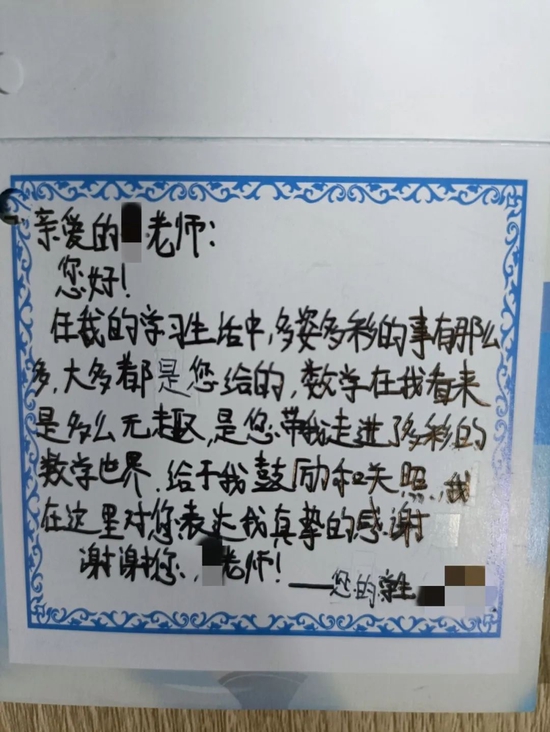 亲爱的老师:
您好!
在我的学习生活中,多姿多彩的事有那么
多,大多都是您给的,数学在我看来
是多么无趣,是您带我走进了多彩的
数学世界,给于我鼓励和关照,我
在这里对您表达我真挚的感谢
谢谢您,老师!
——您的学生